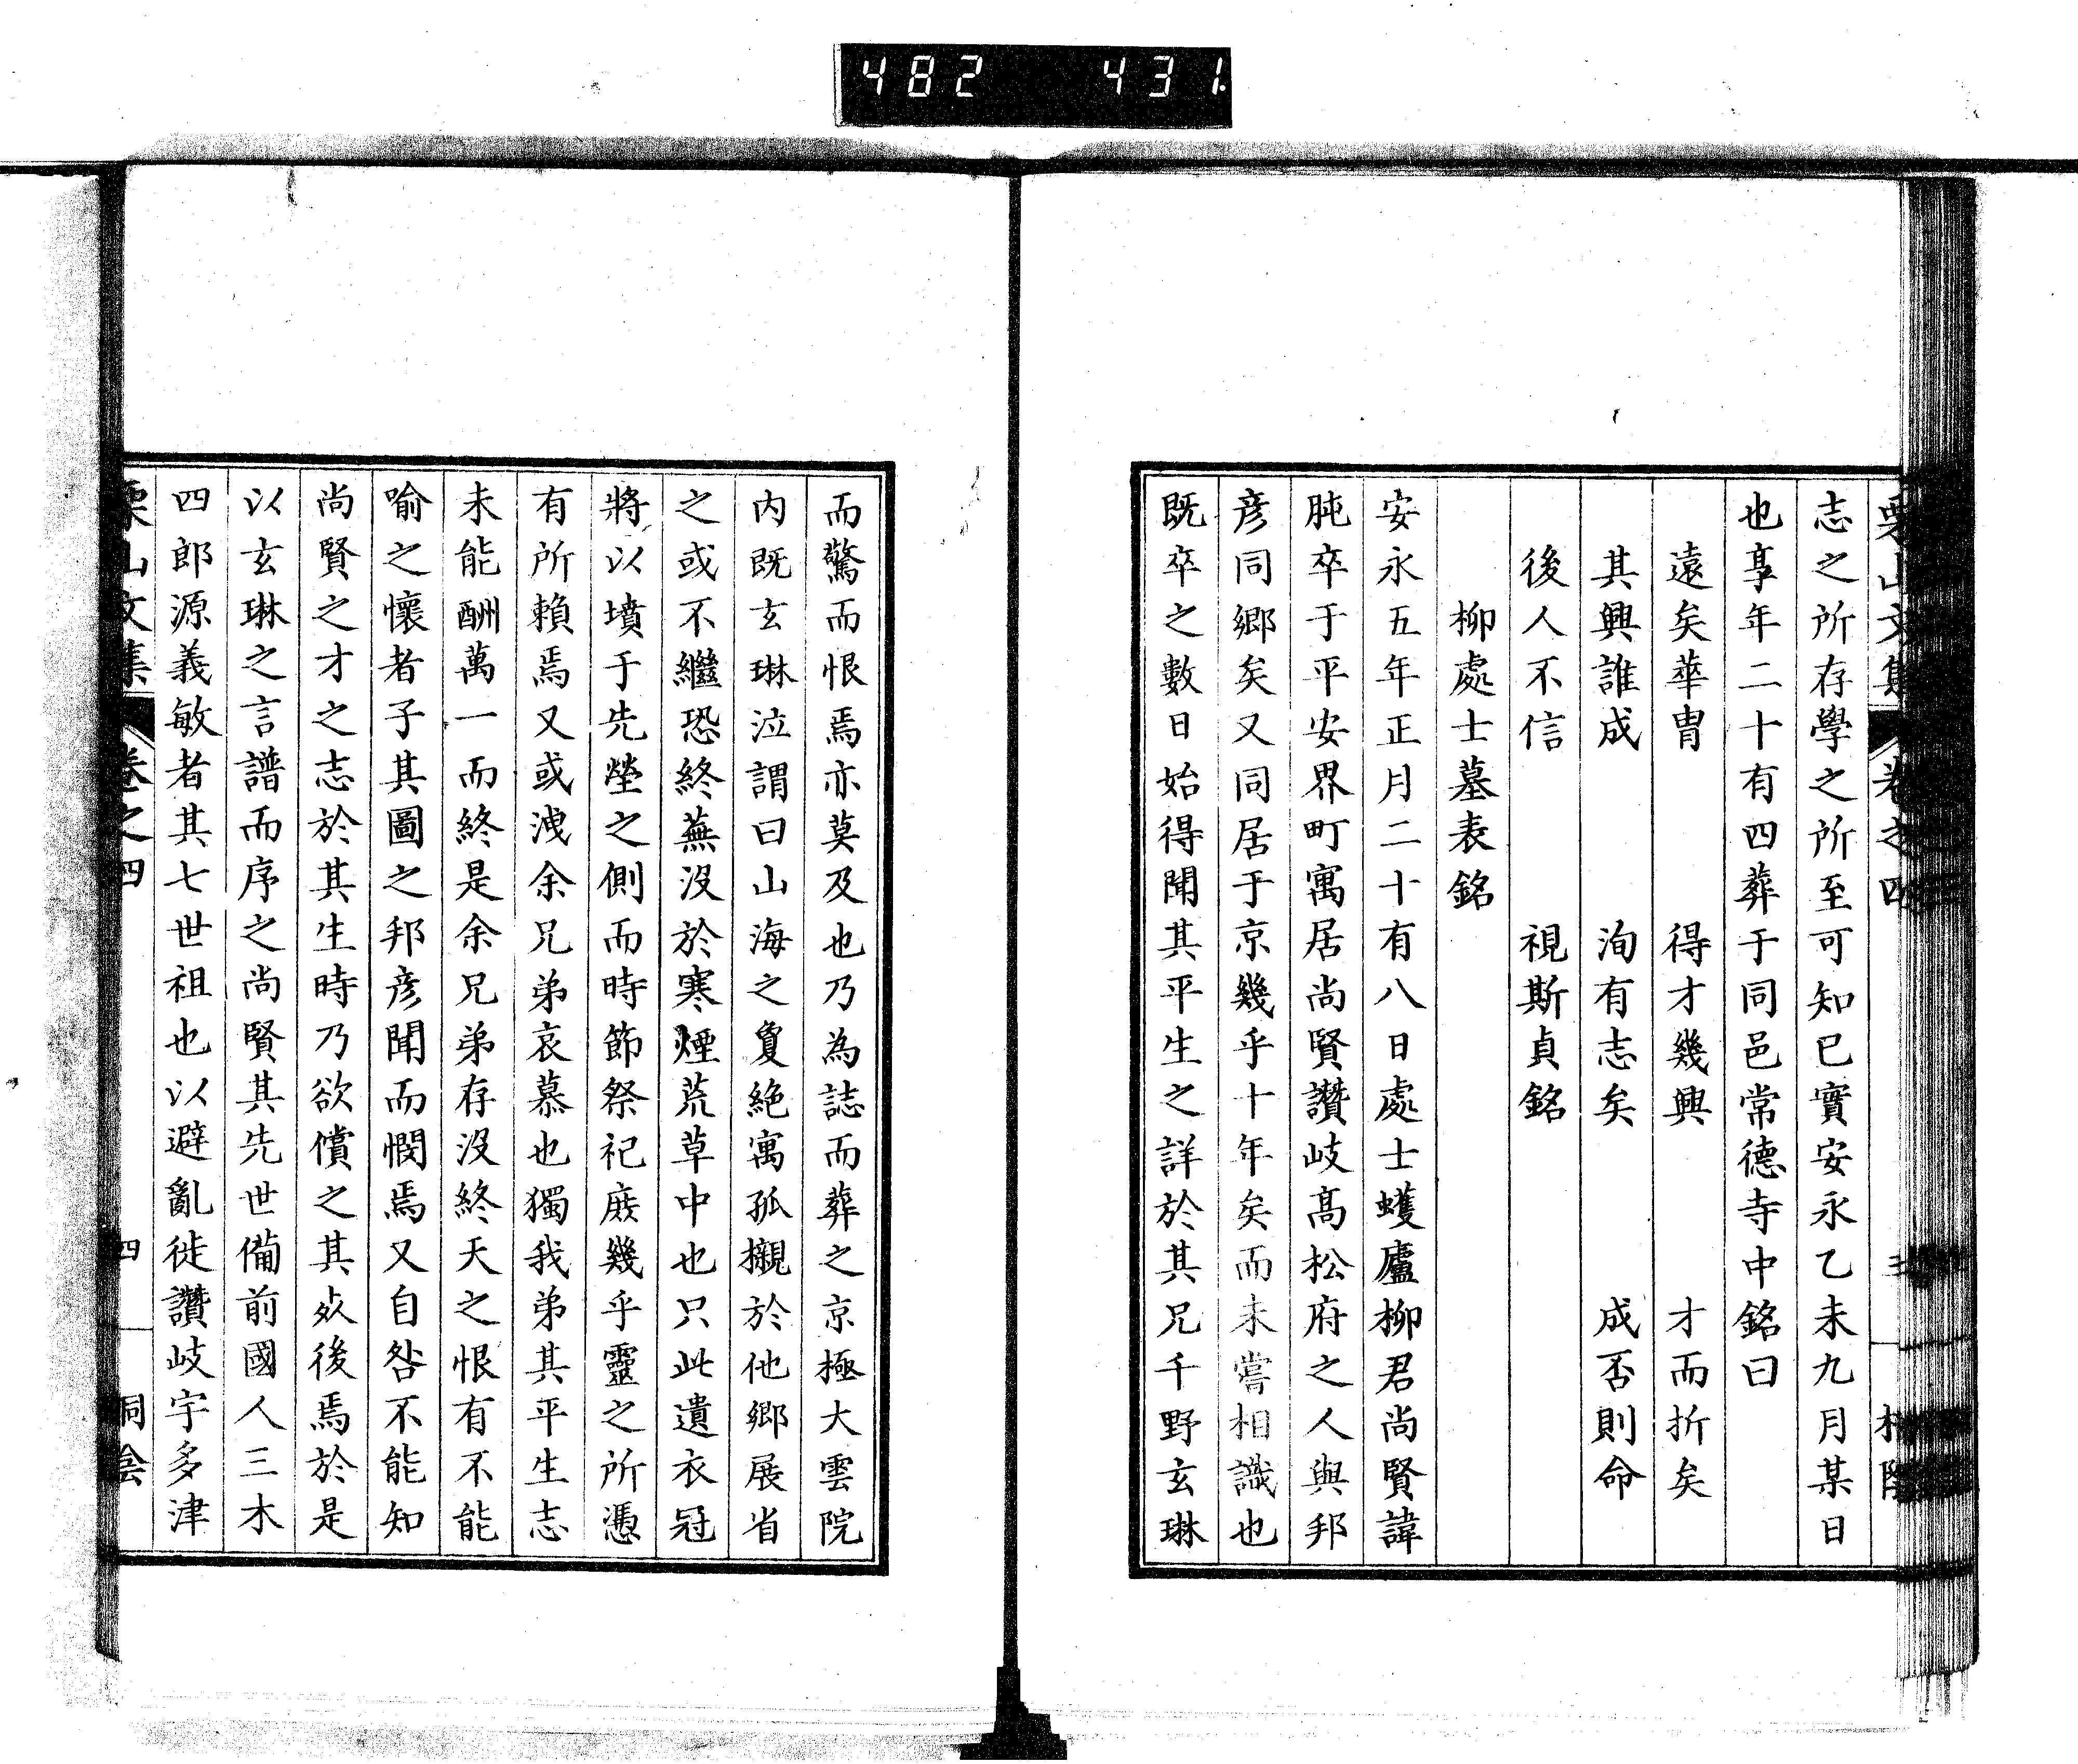 482 431
栗山文集 卷之四 三
志之所存學之所至可知已實安永乙未九月某日
也享年二十有四葬于同邑常德寺中銘曰
遠矣華冑 得才幾興 才而折矣
其興誰成 洵有志矣 成否則命
後人不信 視斯貞銘
柳處士墓表銘
安永五年正月二十有八日處士蠖廬柳君尚賢諱
肫卒于平安界町寓居尚賢讚岐高松府之人與邦
彥同鄉矣又同居于京幾乎十年矣而未嘗相識也
既卒之數日始得聞其平生之詳於其兄千野玄琳
而驚而恨焉亦莫及也乃為誌而葬之京極大雲院
內既玄琳泣謂曰山海之敻絕寓孤櫬於他鄉展省
之或不繼恐終蕪沒於寒煙荒草中也只此遺衣冠
將以墳于先塋之側而時節祭祀庶幾乎靈之所憑
有所賴焉又或洩余兄弟哀慕也獨我弟其平生志
未能酬萬一而終是余兄弟存沒終天之恨有不能
喻之懷者子其圖之邦彥聞而憫焉又自咎不能知
尚賢之才之志於其生時乃欲償之其㱙後焉於是
以玄琳之言譜而序之尚賢其先世備前國人三木
四郎源義敏者其七世祖也以避亂徙讚岐宇多津
栗山文集 卷之四 四